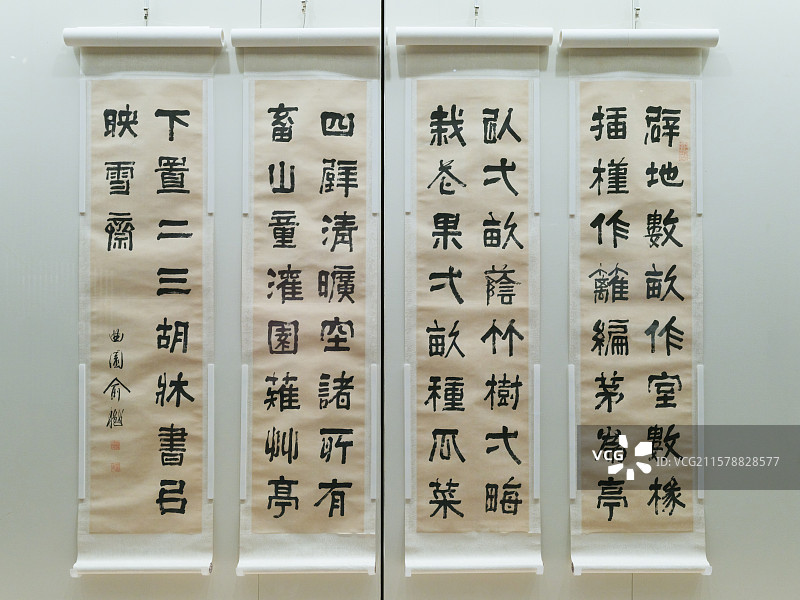 辟地數畝作室數椽
插槿作籬編茅為亭
以弌畝蔭竹樹弌畮
栽花果弍畝種瓜菜
四壁清曠空諸所有
畜山童灌園薙艸亭
下置二三胡牀書㠯
映雪齋
曲園俞樾
VCG
VCG ID: VCG211578828577